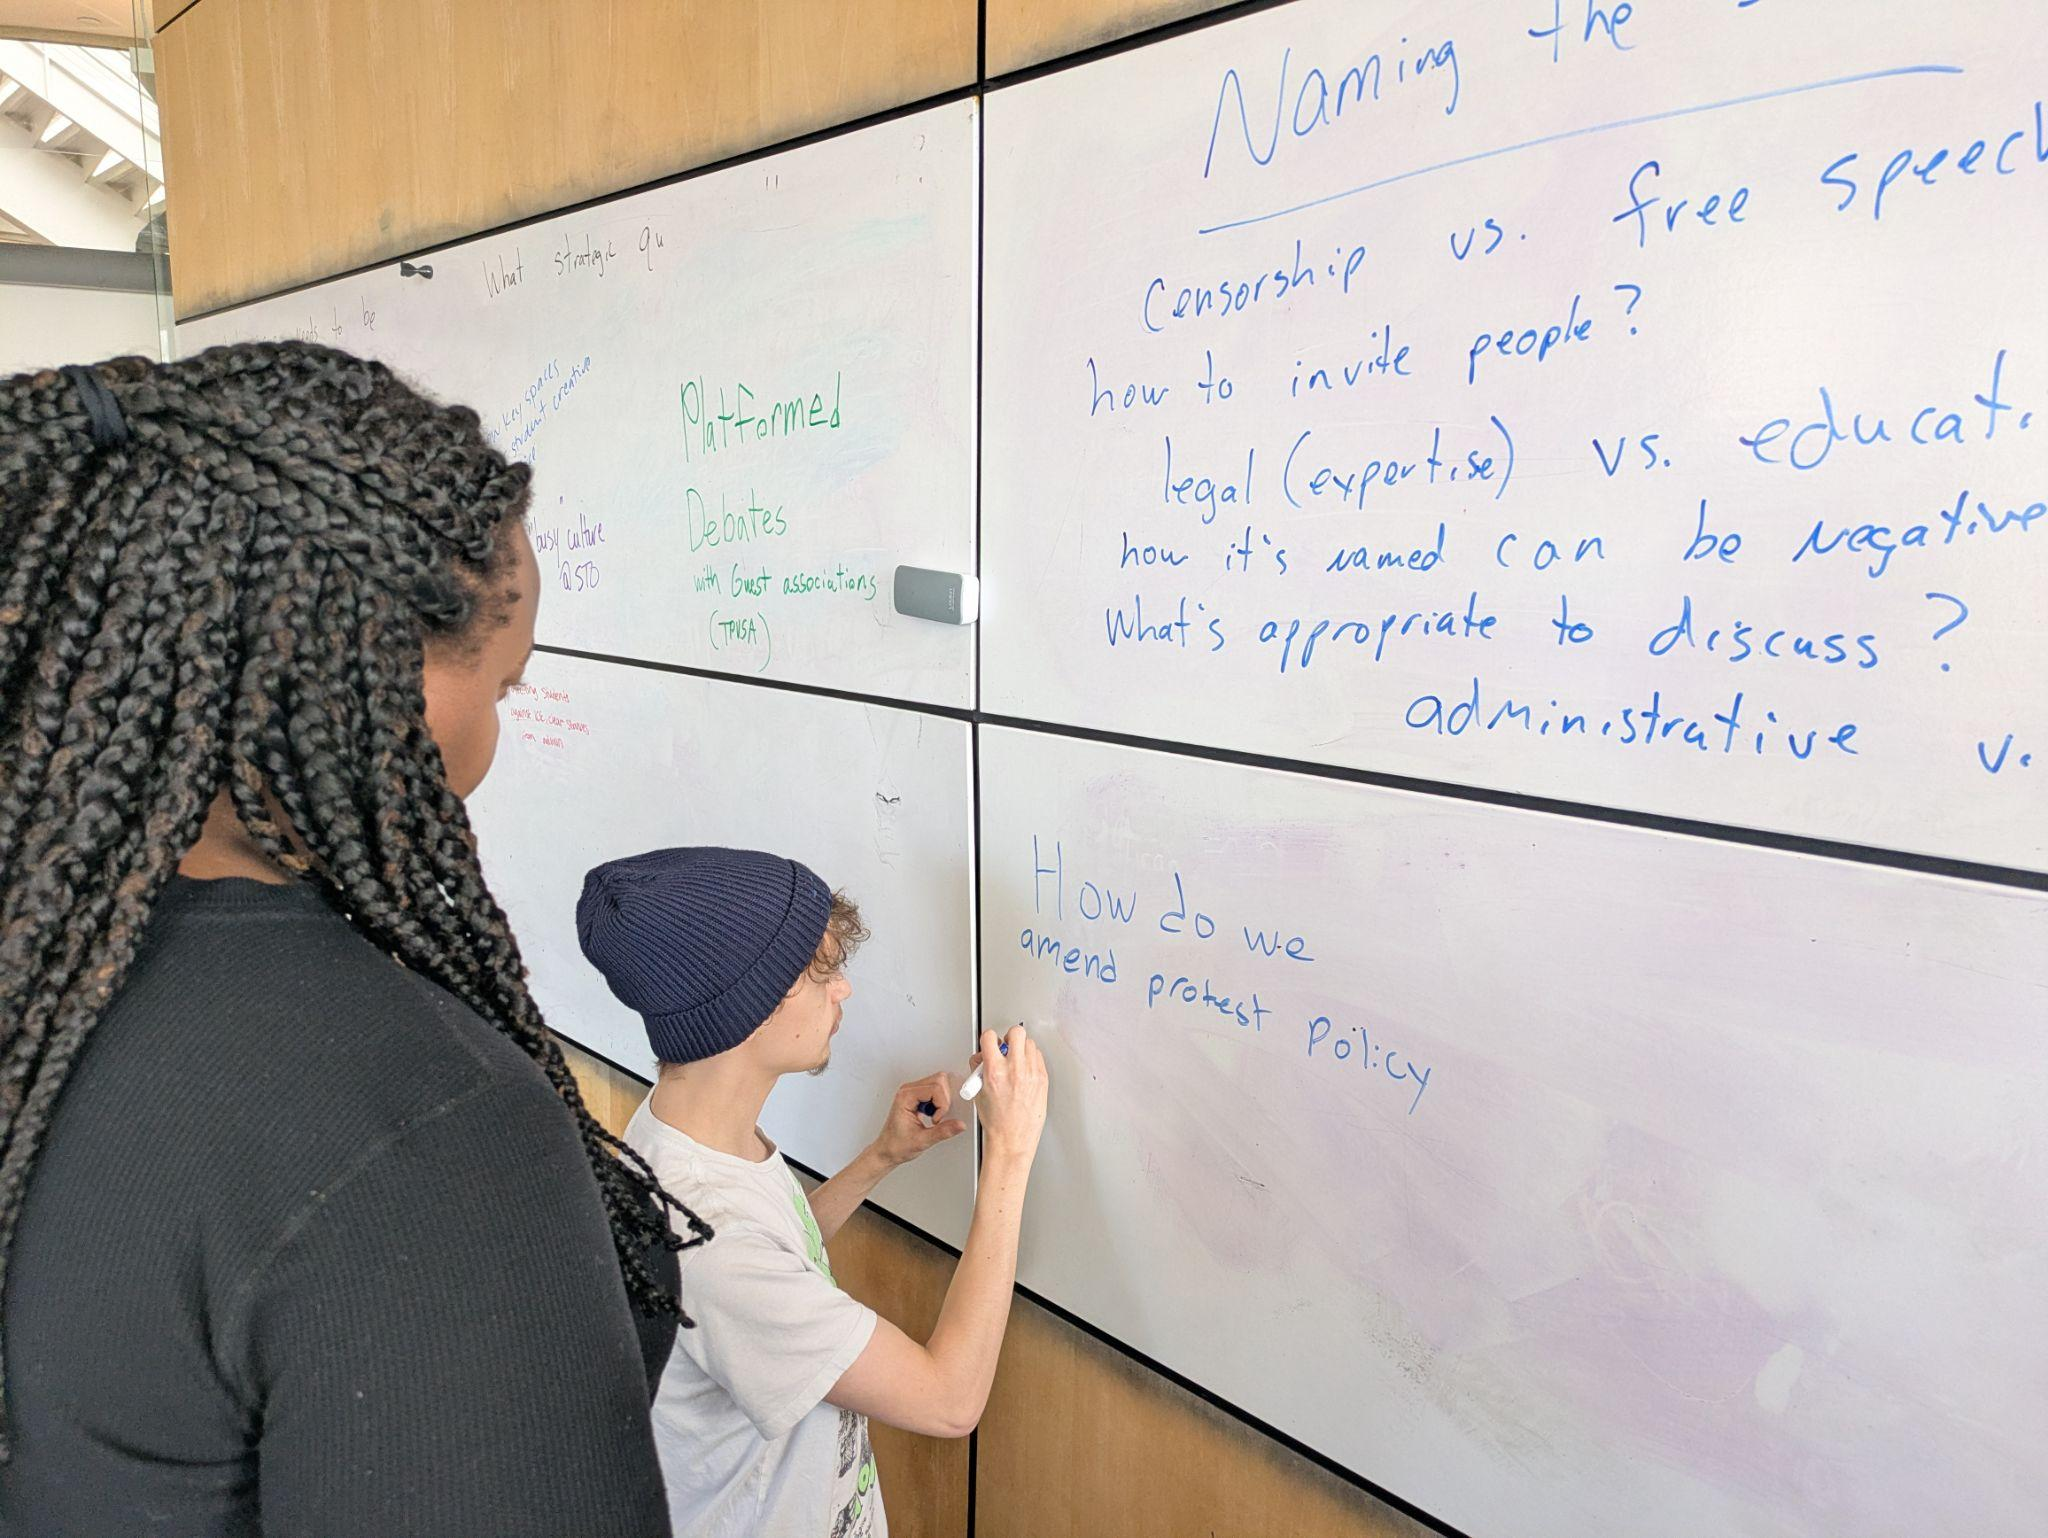 What strategic qu
needs to be
key spaces
student creative
"busy" culture
@STO
Platformed
Debates
with Guest associations
(TPUSA)
students
against ICE, clear stances
from admin
Naming the
Censorship vs. free speech
how to invite people?
legal (expertise) vs. educat.
how it's named can be negative
What's appropriate to discuss?
administrative v.
How do we
amend protest policy